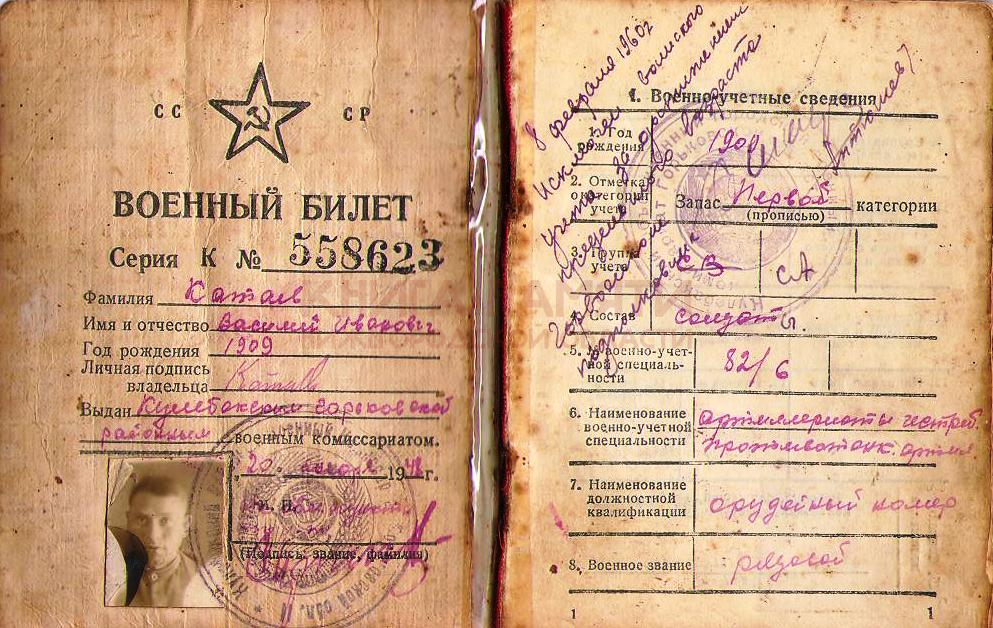 СС СР
ВОЕННЫЙ БИЛЕТ
Серия К № 558623
Фамилия Катаев
Имя и отчество Василий Иванович
Год рождения 1909
Личная подпись
владельца Катаев
Выдан Кулебакским Горьковской
районным военным комиссариатом.
20 января 1948 г.
М. П.
(Подпись, звание, фамилия)
8 февраля 1960г
Исключен с воинского
учета за достижением
предельного возраста
1. Военно-учетные сведения
1. Год
рождения 1909
2. Отметка
о категории
учета Запас Первой категории
(прописью)
3. Группа
учета СА
4. Состав солдаты.
5. № военно-учет-
ной специаль-
ности 82/6
6. Наименование
военно-учетной
специальности артиллеристы истреб.
противотанк. артил.
7. Наименование
должностной
квалификации орудейный номер
8. Военное звание рядовой
1 1